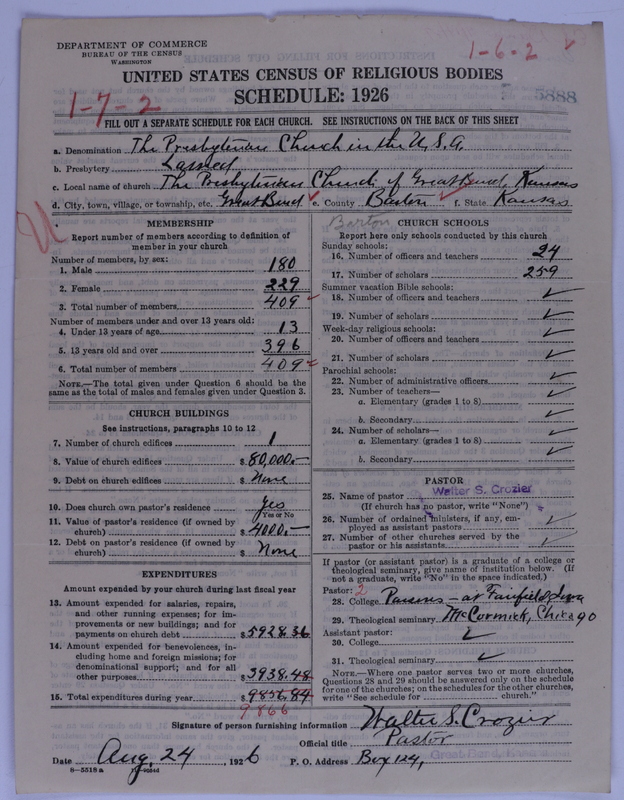 DEPARTMENT OF COMMERCE
BUREAU OF THE CENSUS
WASHINGTON
1-6-2 ✓
UNITED STATES CENSUS OF RELIGIOUS BODIES
SCHEDULE: 1926
5888
1-7-2
FILL OUT A SEPARATE SCHEDULE FOR EACH CHURCH. SEE INSTRUCTIONS ON THE BACK OF THIS SHEET
a. Denomination The Presbyterian Church in the U.S.A.
b. Presbytery Larned
c. Local name of church The Presbyterian Church of Great Bend, Kansas
d. City, town, village, or township, etc. Great Bend ✓ e. County Barton ✓ f. State Kansas
Barton
MEMBERSHIP
Report number of members according to definition of member in your church
Number of members, by sex:
1. Male 180
2. Female 229
3. Total number of members 409 ✓
Number of members under and over 13 years old:
4. Under 13 years of age 13
5. 13 years old and over 396
6. Total number of members 409 ✓
NOTE.—The total given under Question 6 should be the same as the total of males and females given under Question 3.
CHURCH BUILDINGS
See instructions, paragraphs 10 to 12
7. Number of church edifices 1
8. Value of church edifices $ 80,000.—
9. Debt on church edifices $ None
10. Does church own pastor's residence Yes
Yes or No
11. Value of pastor's residence (if owned by church) $ 4000.—
12. Debt on pastor's residence (if owned by church) $ None
EXPENDITURES
Amount expended by your church during last fiscal year
13. Amount expended for salaries, repairs, and other running expenses; for improvements or new buildings; and for payments on church debt $ 5928.36
14. Amount expended for benevolences, including home and foreign missions; for denominational support; and for all other purposes $ 3938.48
15. Total expenditures during year $ 9856.84
9866
CHURCH SCHOOLS
Report here only schools conducted by this church
Sunday schools:
16. Number of officers and teachers 24
17. Number of scholars 259
Summer vacation Bible schools:
18. Number of officers and teachers ✓
19. Number of scholars ✓
Week-day religious schools:
20. Number of officers and teachers ✓
21. Number of scholars ✓
Parochial schools:
22. Number of administrative officers ✓
23. Number of teachers—
a. Elementary (grades 1 to 8) ✓
b. Secondary ✓
24. Number of scholars—
a. Elementary (grades 1 to 8) ✓
b. Secondary ✓
PASTOR
25. Name of pastor Walter S. Crozier
(If church has no pastor, write "None")
26. Number of ordained ministers, if any, employed as assistant pastors ✓
27. Number of other churches served by the pastor or his assistants ✓
If pastor (or assistant pastor) is a graduate of a college or theological seminary, give name of institution below. (If not a graduate, write "No" in the space indicated.)
Pastor: 2
28. College Parsons - at Fairfield, Iowa
29. Theological seminary McCormick, Chicago
Assistant pastor:
30. College ✓
31. Theological seminary ✓
NOTE.—Where one pastor serves two or more churches, Questions 28 and 29 should be answered only on the schedule for one of the churches; on the schedules for the other churches, write "See schedule for ........ church."
Signature of person furnishing information Walter S. Crozier
Official title Pastor
Date Aug. 24, 1926 P. O. Address Box 124,
Great Bend,
8—5518 a